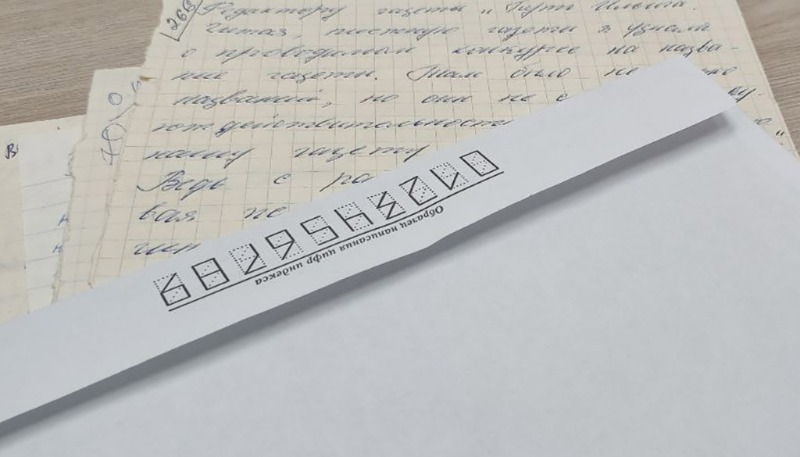 266
Редактору газеты „Путь Ильича.
Читая, местную газету я узнала
о проводимом конкурсе на назва-
ние газеты. Там было не
названий, но они не с
ют действительност
нашу газету
Ведь с ра
вая
Образец написания цифр индекса
0123456789